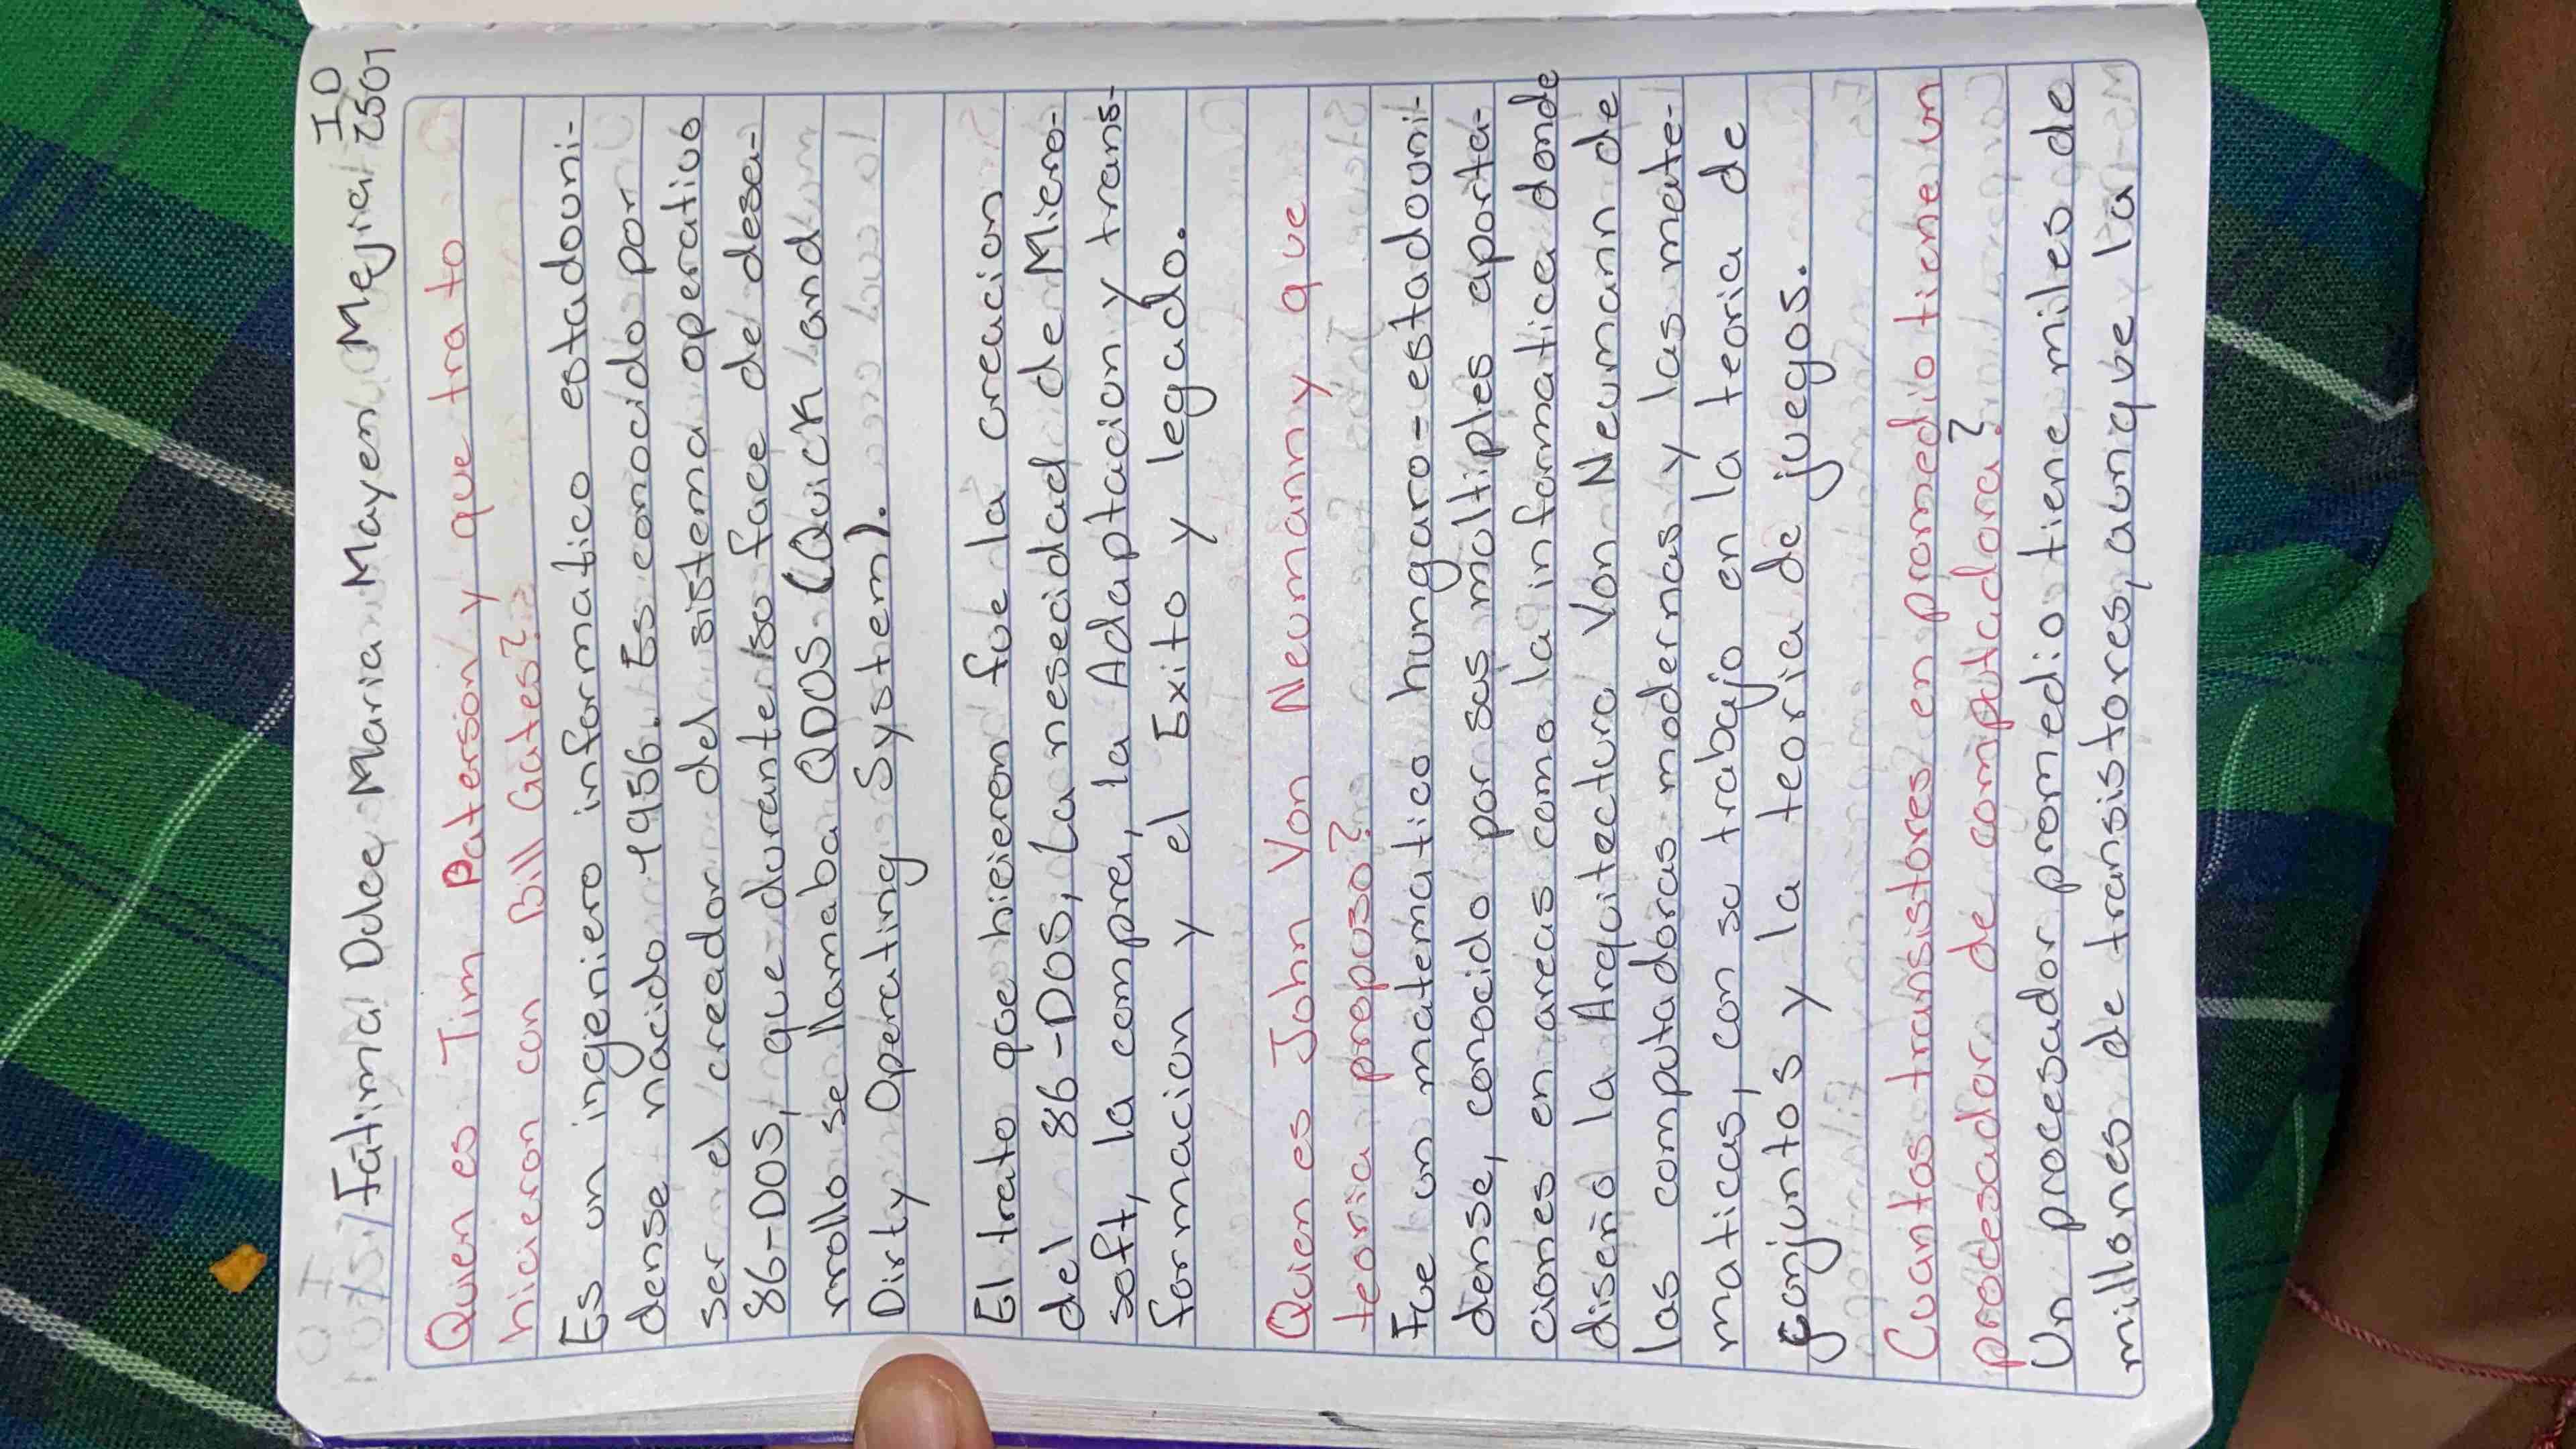 Fatima Dulce Maria Mayen Mejia
ID
2501
Quien es Tim Paterson y que trato
hicieron con Bill Gates?
Es un ingeniero informatico estadouni-
dense nacido 1956. Es conocido por
ser el creador del sistema operativo
86-DOS, que durante so face de desa-
rrollo se llamaba QDOS (Quick and
Dirty Operating System).
El trato que hicieron fue la creacion
del 86-DOS, La nesecidad de Micro-
soft, la compra, la Adaptacion y trans-
formacion y el Exito y legado.
Quien es John Von Neumann y que
teoria propuso?
Fue un matematico hungaro-estadouni-
dense, conocido por sus moltiples aporta-
ciones en areas como la informatica donde
diseño la Arquitectura Von Neumann de
las computadoras modernas y las mate-
maticas, con su trabajo en la teoria de
conjuntos y la teoria de juegos.
Cuantos transistores en promedio tiene un
procesador de computadora?
Un procesador promedio tiene miles de
millones de transistores, aunque la